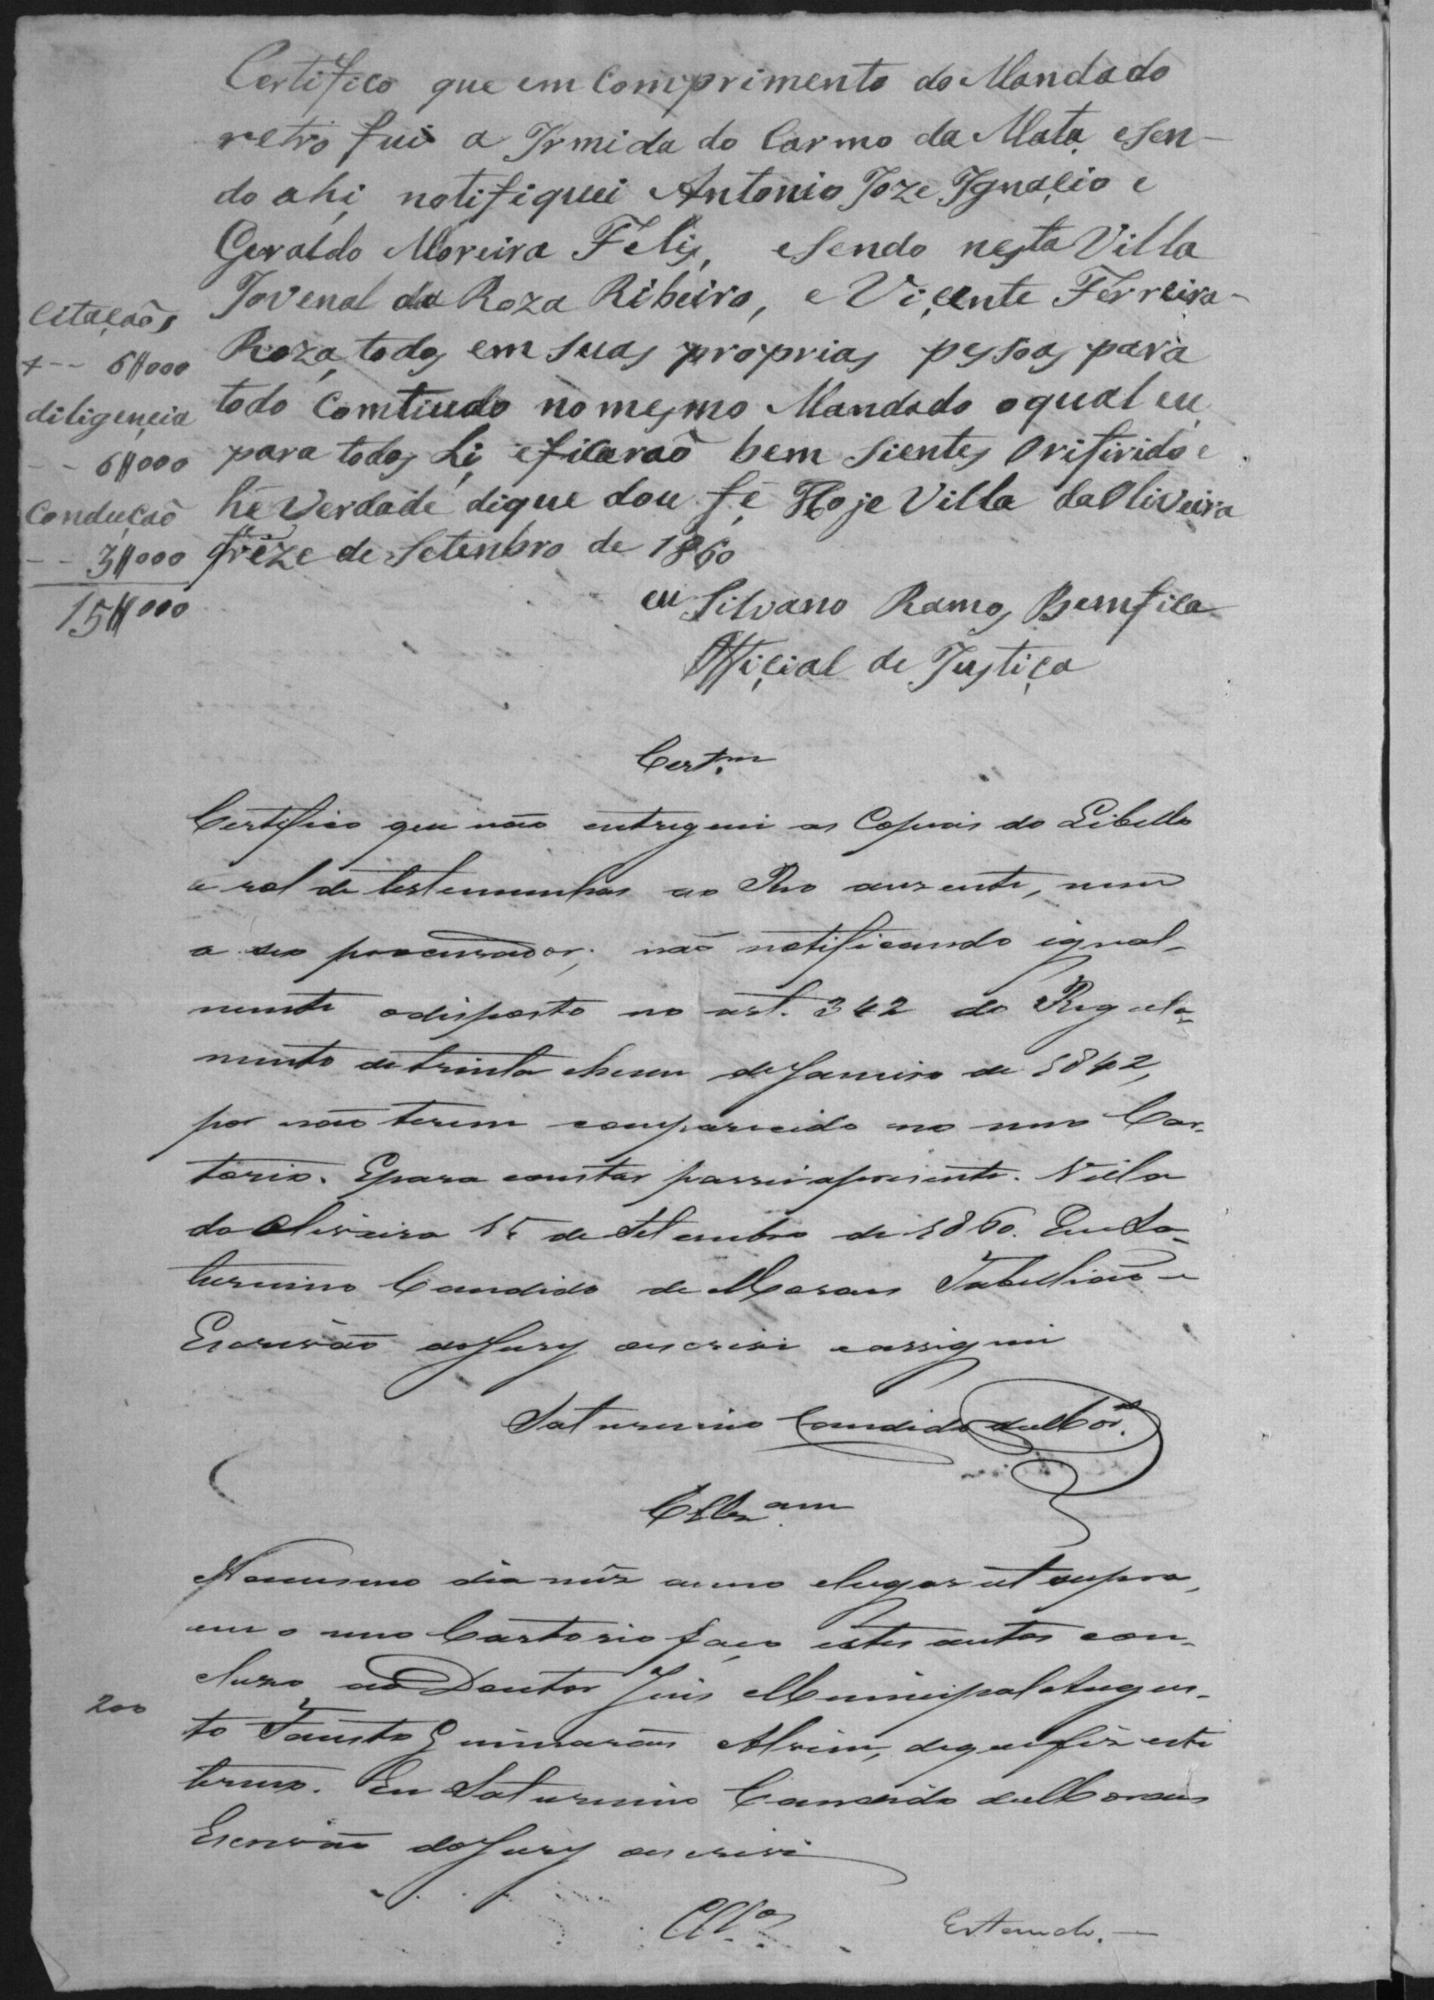 Certifico que em Comprimento do Mandado
retro fui a Irmida do Carmo da Mata, esen-
do ahi notifiquei Antonio Joze Ignacio e
Geraldo Moreira Felis, esendo nesta Villa
Jovenal da Roza Ribeiro, e Viçente Ferreira
Roza, todos em suas proprias pessoas para
todo Comtiudo nomesmo Mandado oqual eu
para todos Li, eficaraõ bem sientes, Orifirido e
hé Verdade dique dou fé Hoje Villa da Oliveira
treze de Setenbro de 1860
eu Silvano Ramos Bemfica
Offiçial de Justiça
Citaçaõs
4-- 6$000
diligençia
-- 6$000
Conduçaõ
-- 3$000
15$000
Cert.m
Certifico que não entreguei as Copias do Libello
e rol de testemunhas ao Reo auzente, nem
a seu procurador; não notificando igual-
mente odisposto no art. 342 do Regula-
mento de trinta ehum de Janeiro de 1842,
por não terem comparecido no meu Car-
torio. Epara constar passei apresente. Villa
da Oliveira 15 de Setembro de 1860. Eu Sa-
turnino Candido de Moraes Tabellião e
Escrivão do Jury escrevi eassignei
Saturnino Candido de Mor.es
Cllz.am
Nomesmo dia mez anno elugar ut supra,
em o meu Cartorio faço estes autos con-
cluzo ao Doutor Juis Municipal Augus-
to Fausto Guimarães Alvim, deque fiz este
termo. Eu Saturnino Candido de Moraes
Escrivão do Jury escrevi
200
Cll.os
Estando. —